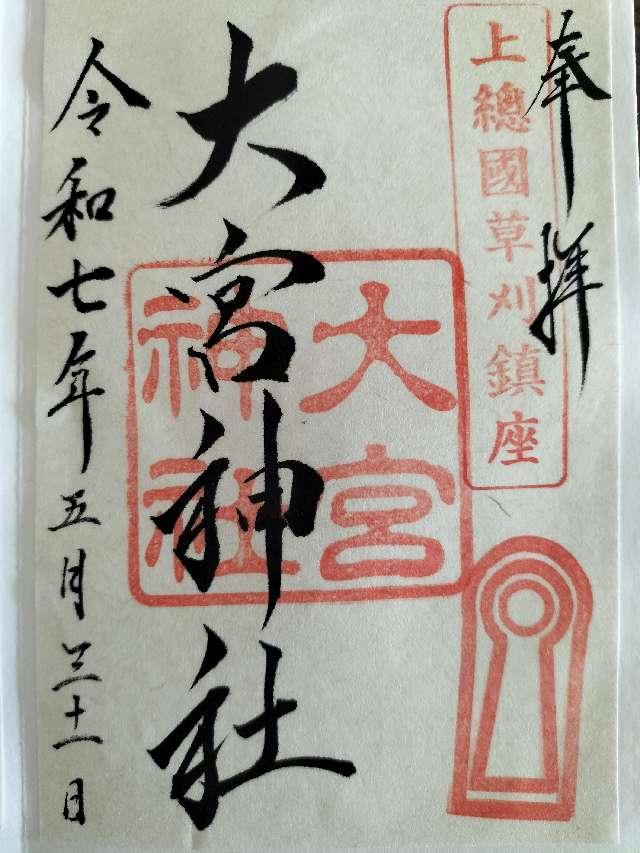 奉拝
上總國草刈鎮座
大宮神社
大宮
神社
令和七年五月三十一日